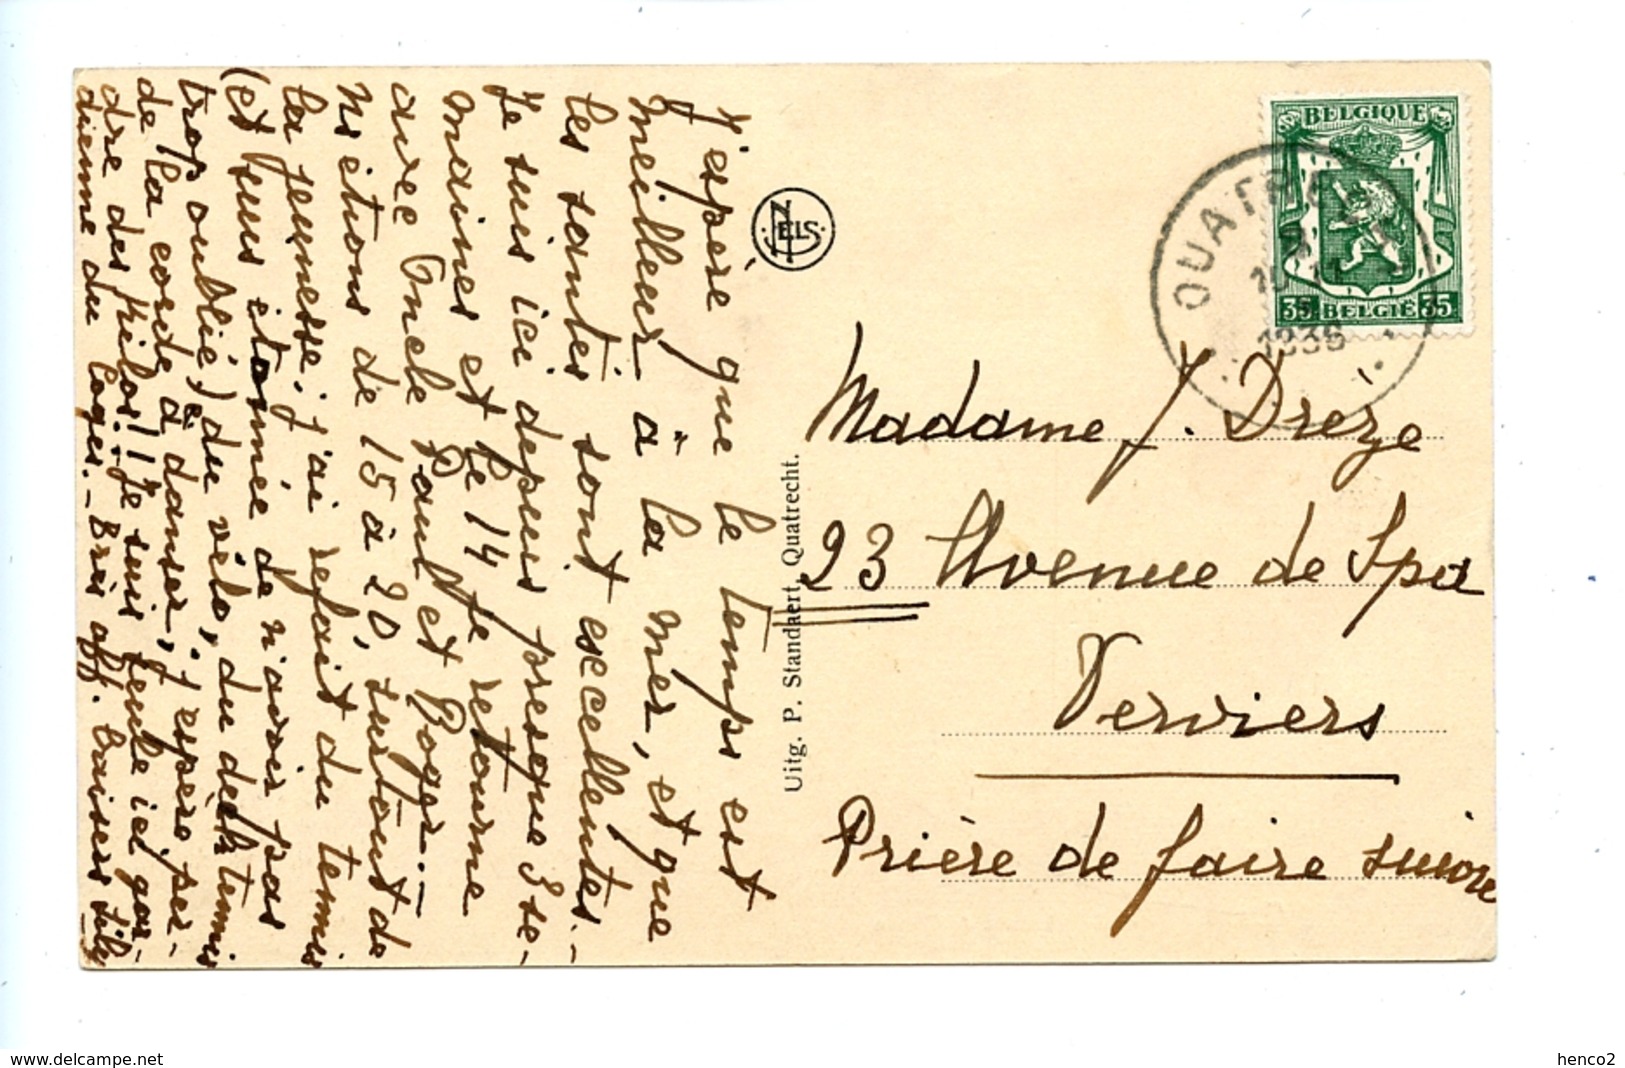 J'espère que le temps est
meilleur à la mer, et que
les santés sont excellentes.-
Je suis ici depuis presque 3 se-
maines et le 14 je retourne
avec Oncle Paul et Roger.-
Ns étions de 15 à 20, surtout de
la jeunesse. j'ai refait du tennis
(et suis étonnée de n'avoir pas
trop oublié) du vélo, du deck tennis
de la corde à danser, j'espère per-
dre des kilos!! Je suis seule ici gar-
dienne du logis.- Brès aff. baisers
NELS
Uitg. P. Standaert, Quatrecht.
BELGIQUE
35 BELGIË 35
QUATRE
1936
Madame J. Drèze
23 Avenue de Spa
Verviers
Prière de faire suivre
www.delcampe.net
henco2